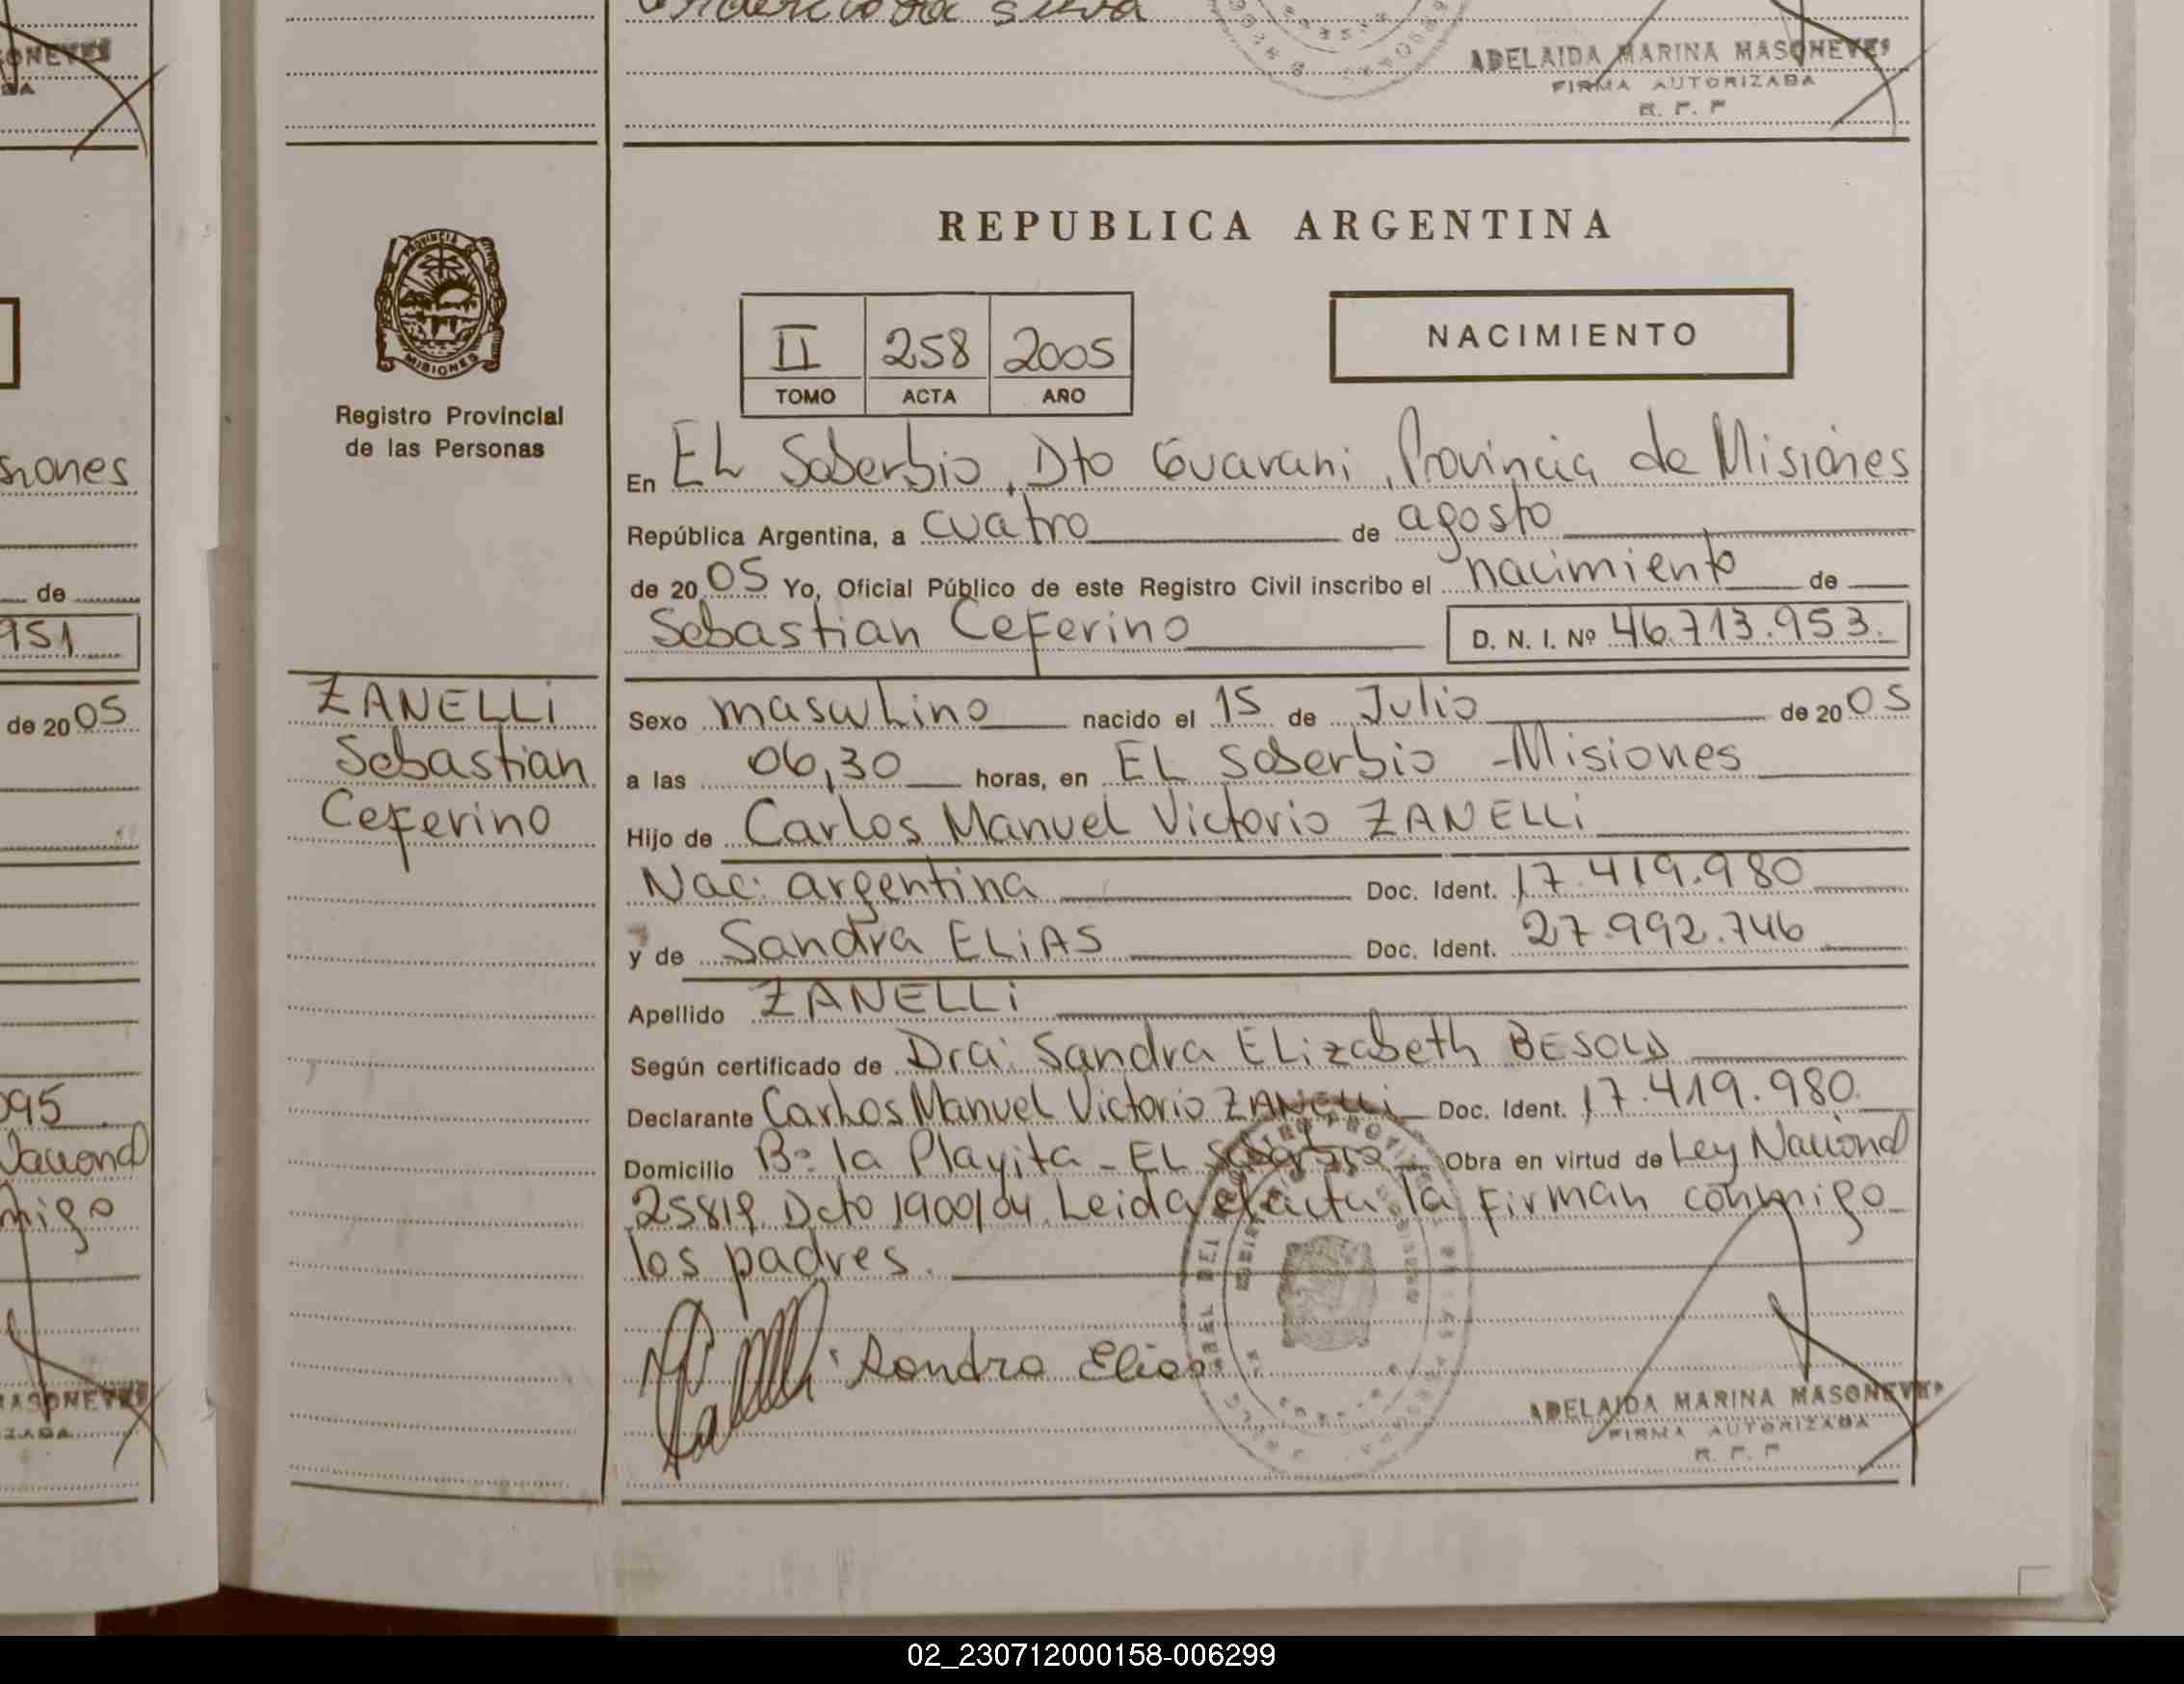 ADELAIDA MARINA MASONEVES
FIRMA AUTORIZADA
R. P. P
REPUBLICA ARGENTINA
PROVINCIA
MISIONES
Registro Provincial
de las Personas
II 258 2005
TOMO ACTA AÑO
NACIMIENTO
En EL Soberbio, Dto Guarani, Provincia de Misiones
República Argentina, a cuatro de agosto
de 2005 Yo, Oficial Público de este Registro Civil inscribo el nacimiento de
Sebastian Ceferino D. N. I. Nº 46.713.953.
ZANELLi
Sebastian
Ceferino
Sexo masculino nacido el 15 de Julio de 2005
a las 06,30 horas, en EL Soberbio - Misiones
Hijo de Carlos Manuel Victorio ZANELLi
Nac: argentina Doc. Ident. 17.419.980
y de Sandra ELiAS Doc. Ident. 27.992.746
Apellido ZANELLi
Según certificado de Dra: Sandra ELizabeth BESOLD
Declarante Carlos Manuel Victorio ZANELLi Doc. Ident. 17.419.980.
Domicilio Bº la Playita - EL Soberbio Obra en virtud de Ley Nacional
25819 Dcto 1900/04 Leida el acta la firman conmigo
los padres.
Sandra Elias
ADELAIDA MARINA MASONEVES
FIRMA AUTORIZADA
R. P. P
siones
de
951
de 2005
095
Nacional
migo
MASONEVES
ZADA
02_230712000158-006299